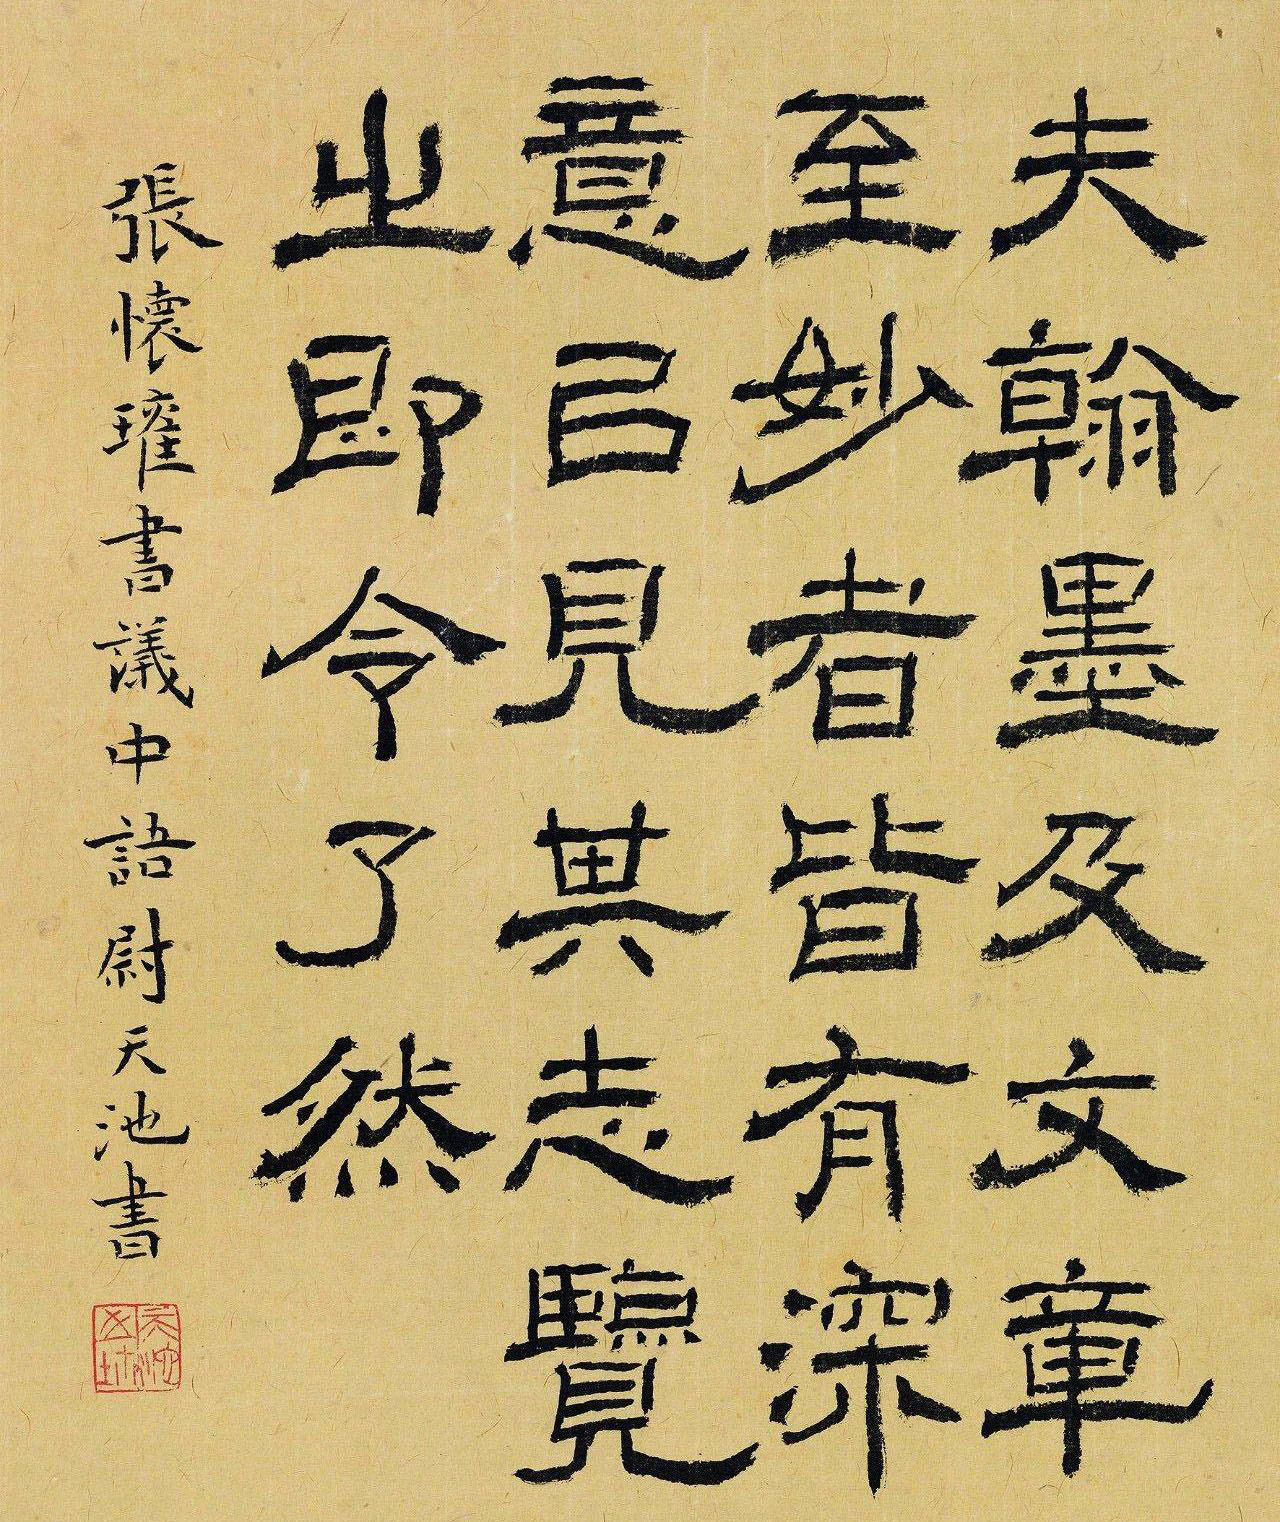 夫翰墨及文章
至妙者皆有深
意以見其志覽
之即令了然
張懷瓘書議中語尉天池書